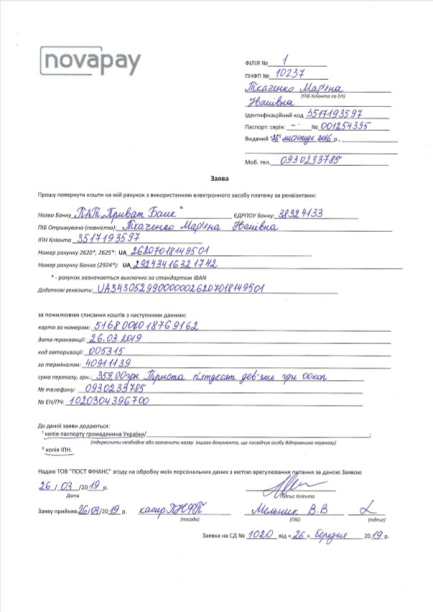 novapay
ФІЛІЯ № 1
ПНФП № 10237
Ткаченко Мар'яна
(ПІБ Клієнта та ЕН)
Іванівна
Ідентифікаційний код 3517193597
Паспорт: серія: – № 001254395
Виданий
Моб. тел. 0930233785
Заява
Прошу повернути кошти на мій рахунок з використанням електронного засобу платежу за реквізитами:
Назва Банку „ПАТ „Приват Банк" ЄДРПОУ Банку:
ПІБ Отримувача (повністю): Ткаченко Мар'яна Іванівна
ІПН Клієнта 3517193597
Номер рахунку 2620*, 2625*: UA 26207018149501
Номер рахунку Банка (2924*): UA 2924341632 1742
* - рахунок зазначається виключно за стандартом IBAN
Додаткові реквізити: UA343052990000026207018149501
за помилковим списання коштів з наступними даними:
карта за номером: 5168 0060 1876 9162
дата транзакції: 26.03.2019
код авторизації: 005315
за терміналом: 40911139
сума переказу, грн.: 359.00грн Триста п'ятдесят дев'ять грн 00коп
№ телефону: 0930233785
№ ЕН/ПЧ: 1020304396700
До даної заяви додаються:
¹ копія паспорту громадянина України/
(підкреслити необхідне або зазначити назву іншого документа, що посвідчує особу Відправника переказу)
² копія ІПН.
Надаю ТОВ "ПОСТ ФІНАНС" згоду на обробку моїх персональних даних з метою врегулювання питання за даною Заявою
26 / 03 /2019 р.
Дата Підпис Клієнта
Заяву прийняв 26/03/2019 р. касир ПНФП Мельник В.В
(посада) (ПІБ) (підпис)
Заявка на СД № 1020 від «26» березня 2019 р.